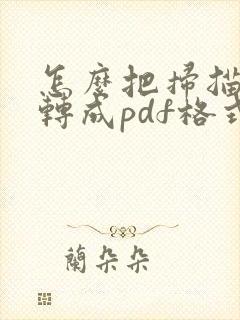 怎麼把掃描
轉成pdf格式
蘭朵朵